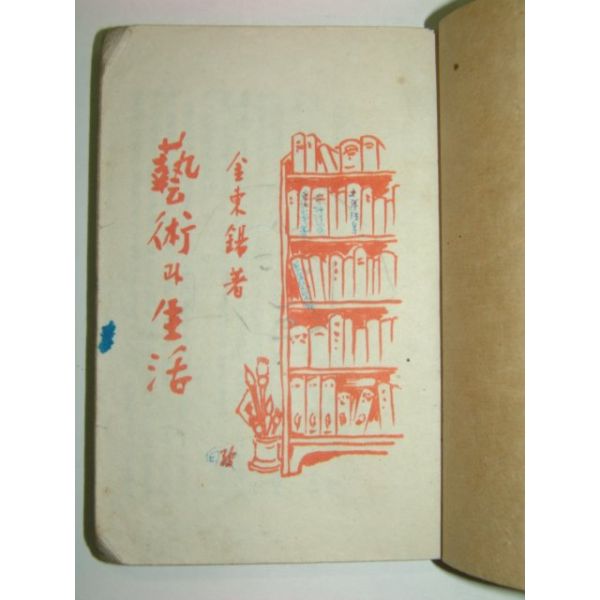 藝術과 生活
金東錫著